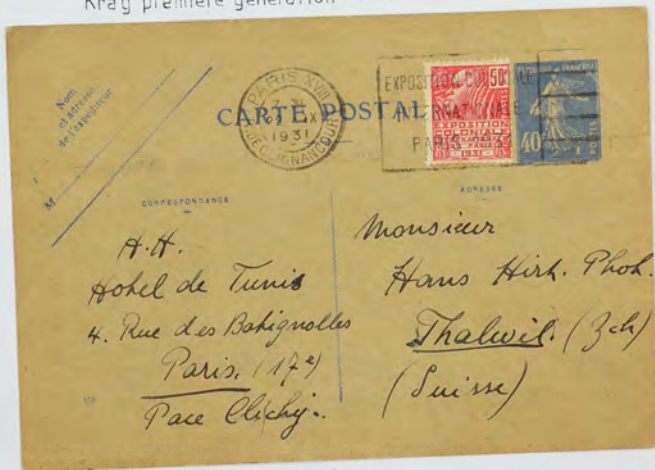 Krag première génération
Nom
et adresse
de l'expéditeur
M
CARTE POSTALE
PARIS XVIII
IX
1931
R. DE CLIGNANCOURT
EXPOSITION COLONIALE
INTERNATIONALE
PARIS 1931
50c
EXPOSITION
COLONIALE
INTERNATIONALE
PARIS
1931
40c
POSTES
CORRESPONDANCE
ADRESSE
H.H.
Hotel de Tunis
4. Rue des Batignolles
Paris. (17e)
Pace Clichy.
Monsieur
Hans Hirt. Phot.
Thalwil. (Zch)
(Suisse)